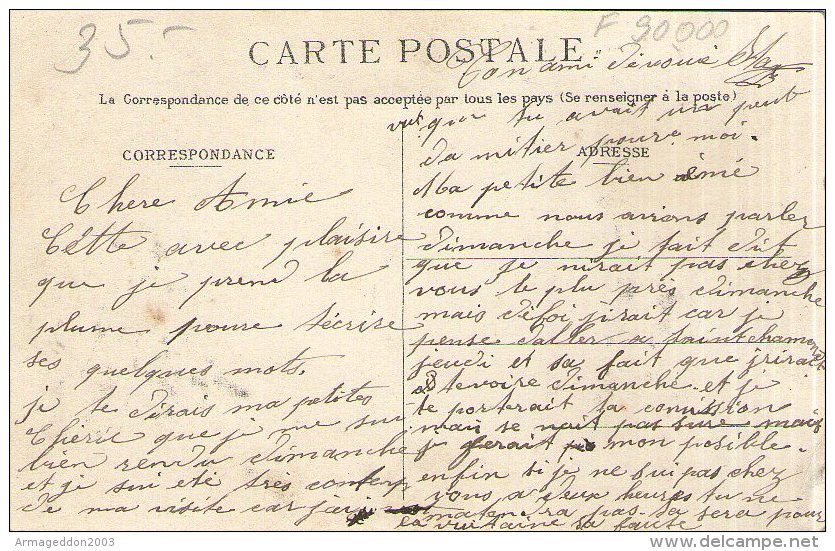 35.-
F 90000
CARTE POSTALE
Ton ami dévoué
La Correspondance de ce côté n'est pas acceptée par tous les pays (Se renseigner à la poste)
CORRESPONDANCE
Chere Amie
Cétte avec plaisire
que je prend la
plume poure técrire
ses quelques mots.
je te dirais ma petites
Chérie que je me sui
bien rendu dimanche
et je sui eté très conten
de ma visite car j'ai
vut que tu avait un peut
da mitier poure moi.
ADRESSE
Ma petite bien émé
comme nous avions parler
dimanche je tait dit
que je nirait pas chez
vous le plu près dimanche
mais défoi jirait car je
pense daller a Saint chamond
jeudi et sa fait que jrirait
tevoire dimanche et je
te porterait ta comission
mais se nait pas sure mais
je ferait mon posible.
enfin si je ne sui pas chez
vous a deux heures tu ne
matendra pas sa sera pour
la vuitaine sa faute
Armageddon2003
delcampe.net